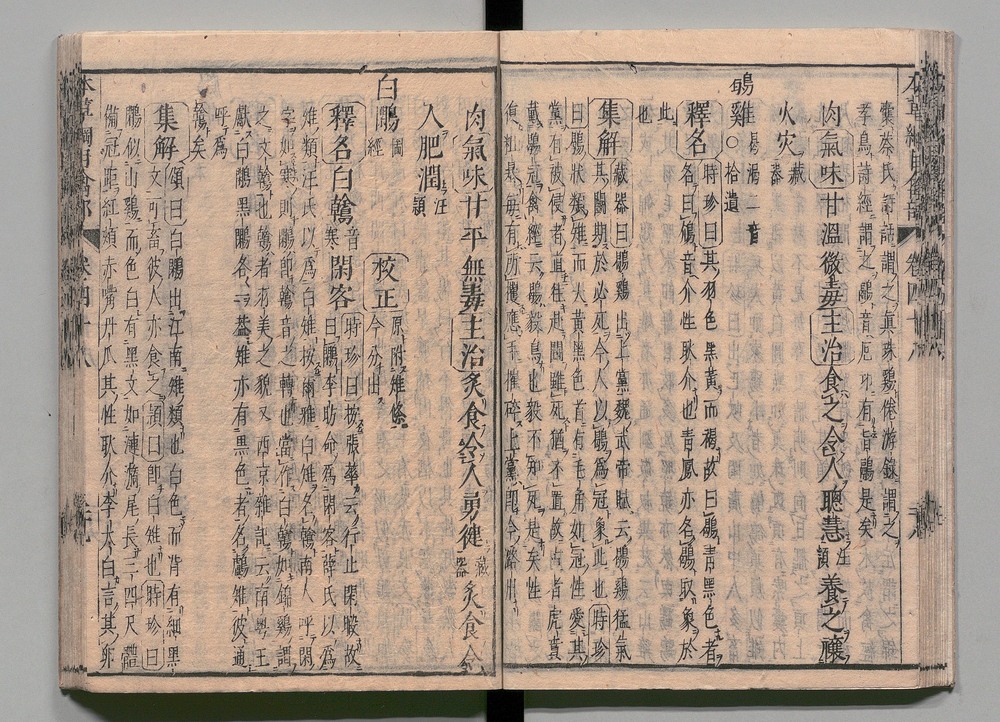 囊蔡氏詩話謂之真珠鷄倦游録謂之
孝鳥詩經謂之鷊音厄邛有旨鷊是矣
肉氣味甘溫微毒主治食之令人聰慧汪頴養之禳
火灾藏器
鶡雞曷渴二音
○拾遺
釋名時珍曰其羽色黑黃而褐故曰鶡青黑色者
名曰鳻音介性耿介也青鳳亦名鶡取象於
此也
集解藏器曰鶡鷄出上黨魏武帝賦云鶡鷄猛氣
其鬪期於必死今人以鶡爲冠象此也時珍
曰鶡狀類雉而大黃黑色首有毛角如冠性愛其
黨有被侵者直往赴鬪雖死猶不置故古者虎賁
戴鶡冠禽經云鶡毅鳥也毅不知死是矣性
復粗暴每有所攫應手摧碎上黨即今路州
肉氣味甘平無毒主治炙食令人勇健藏器炙食令
人肥潤汪頴
白鷴圖經
校正原附雉條今分出
釋名白鶾音寒閑客時珍曰按張華云行止閑暇故
曰鷴李昉命爲閑客薛氏以爲
雉類汪氏以爲白雉按爾雅白雉名鶾南人呼閑
字如寒則鷴即鶾音之轉也當作白鶾如錦鷄謂
之文鶾也鶾者羽美之貌又西京雜記云南粤王
獻白鷴黑鷴各一蓋雉亦有黑色者名鸕雉彼通
呼爲
鷴矣
集解頌曰白鷴出江南雉類也白色而背有細黑
文可畜彼人亦食之頴曰即白雉也時珍曰
鷴似山鷄而色白有黑文如漣漪尾長三四尺體
備冠距紅頰赤觜丹爪其性耿介李太白言其卵
本草綱目禽部
卷四十八